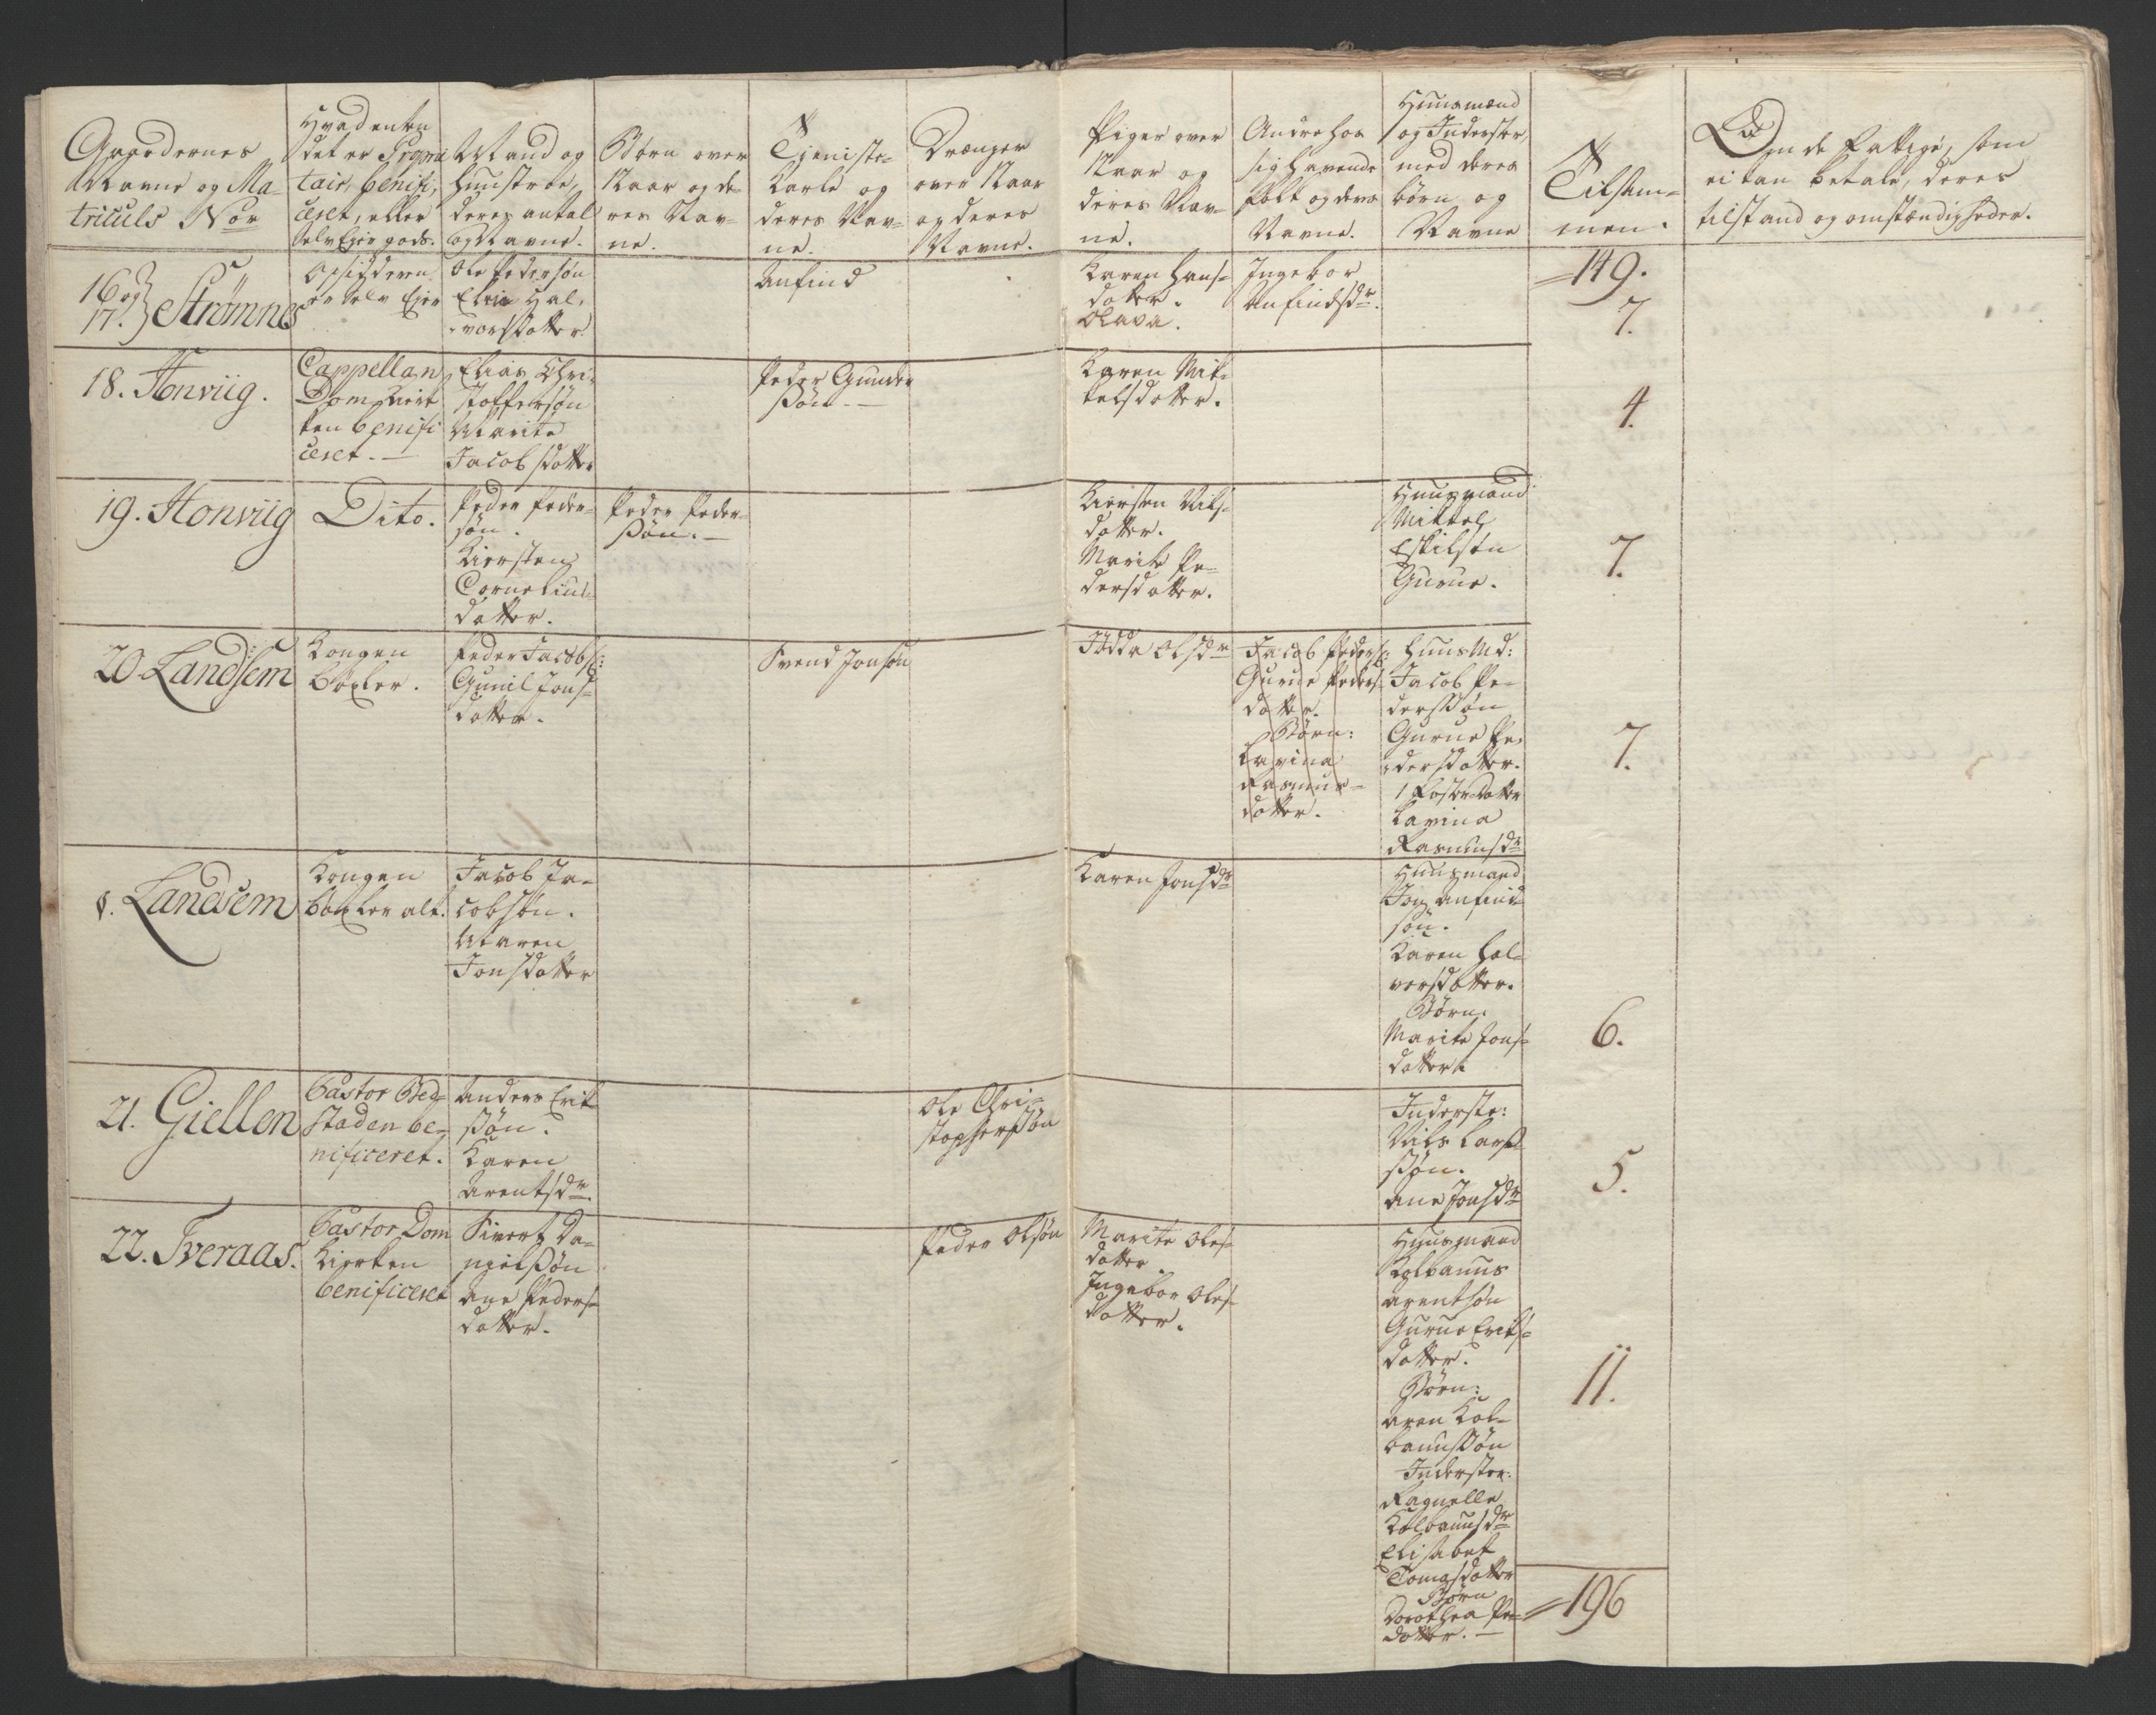 Gaardernes
Navne og Ma-
triculs Nor
Hvad enten
det er Proprie
tair, benifi-
ceret, eller
selv Eier gods.
Mand og
Hunstroe,
deres antal
og Navne.
Børn over
12 aar og de-
res Nav-
ne.
Tieniste-
Karle og
deres Nav-
ne.
Drænger
over 12 aar
og deres
Navne.
Piger over
12 aar og
deres Nav-
ne.
Andre hos
sig havende
folk og deres
Navne.
Huusmænd
og Inderster,
med deres
børn og
Navne
Tilsam-
men.
Om de Fattige, som
ei kan betale, deres
tilstand og omstændigheder.
16 og
17. Strømnes
Opsidderen
er selv Eier
Ole Pedersøn
Elen Hal-
vorsdatter
Anfind
Karen Hans-
datter.
Olava.
Ingebor
Anfindsdr.
149.
7.
18. Honviig.
Cappellan
Dom Kirk
ken benifi
ceret.
Elias Chri-
stoffersøn
Marite
Jacobsdatter
Peder Gunder
søn.
Karen Mik-
kelsdatter.
4.
19. Honviig
Dito.
Peder Peder-
søn.
Kiersten
Cornelius-
datter.
Peder Peder-
søn.
Kiersten Nils-
datter.
Marite Pe-
dersdatter.
Huusmand
Mikkel
Eskilsøn
Gurue.
7.
20 Landsem
Kongen
böxler.
Peder Jacobs:
Gunil Jons-
datter.
Svend Jonsøn
Ildde Olsdr
Jacob Peders:
Gurue Peders
datter.
Børn:
Lavina
Rasmus-
datter.
Huus Md:
Jacob Pe-
dersøn
Gurue Pe-
dersdatter.
1 Foster Datter
Lavina
Rasmusdr
7.
Landsem
Kongen
böxler alt.
Jacob Ja-
cobsøn.
Maren
Jonsdatter
Karen Jonsdr
Huusmand
Jon Anfind-
søn.
Karen Hal-
vorsdatter.
Børn.
Marite Jons-
datter
6.
21. Giellen
Pastor Beg-
staden be-
nificeret.
Anders Erik
søn.
Karen
Arentsdr.
Ole Chri-
stophersøn
Inderste:
Nils Lars
søn.
Ane Jonsdr
5.
22. Tveraas.
Pastor Dom
Kierken
benificeret
Sivert Da-
nielsøn
Ane Peders-
datter.
Peder Olsøn
Marite Oles-
datter
Ingebor Oles-
datter.
Huusmand
Kolbanus
Arentsøn
Gurue Eriks-
datter.
Børn:
Aren Kol-
banussøn
Inderster:
Ragnelle
Kolbanusdr
Elisabet
Tomasdatter
Børn
Dorothea Pe-
datter.
11.
196